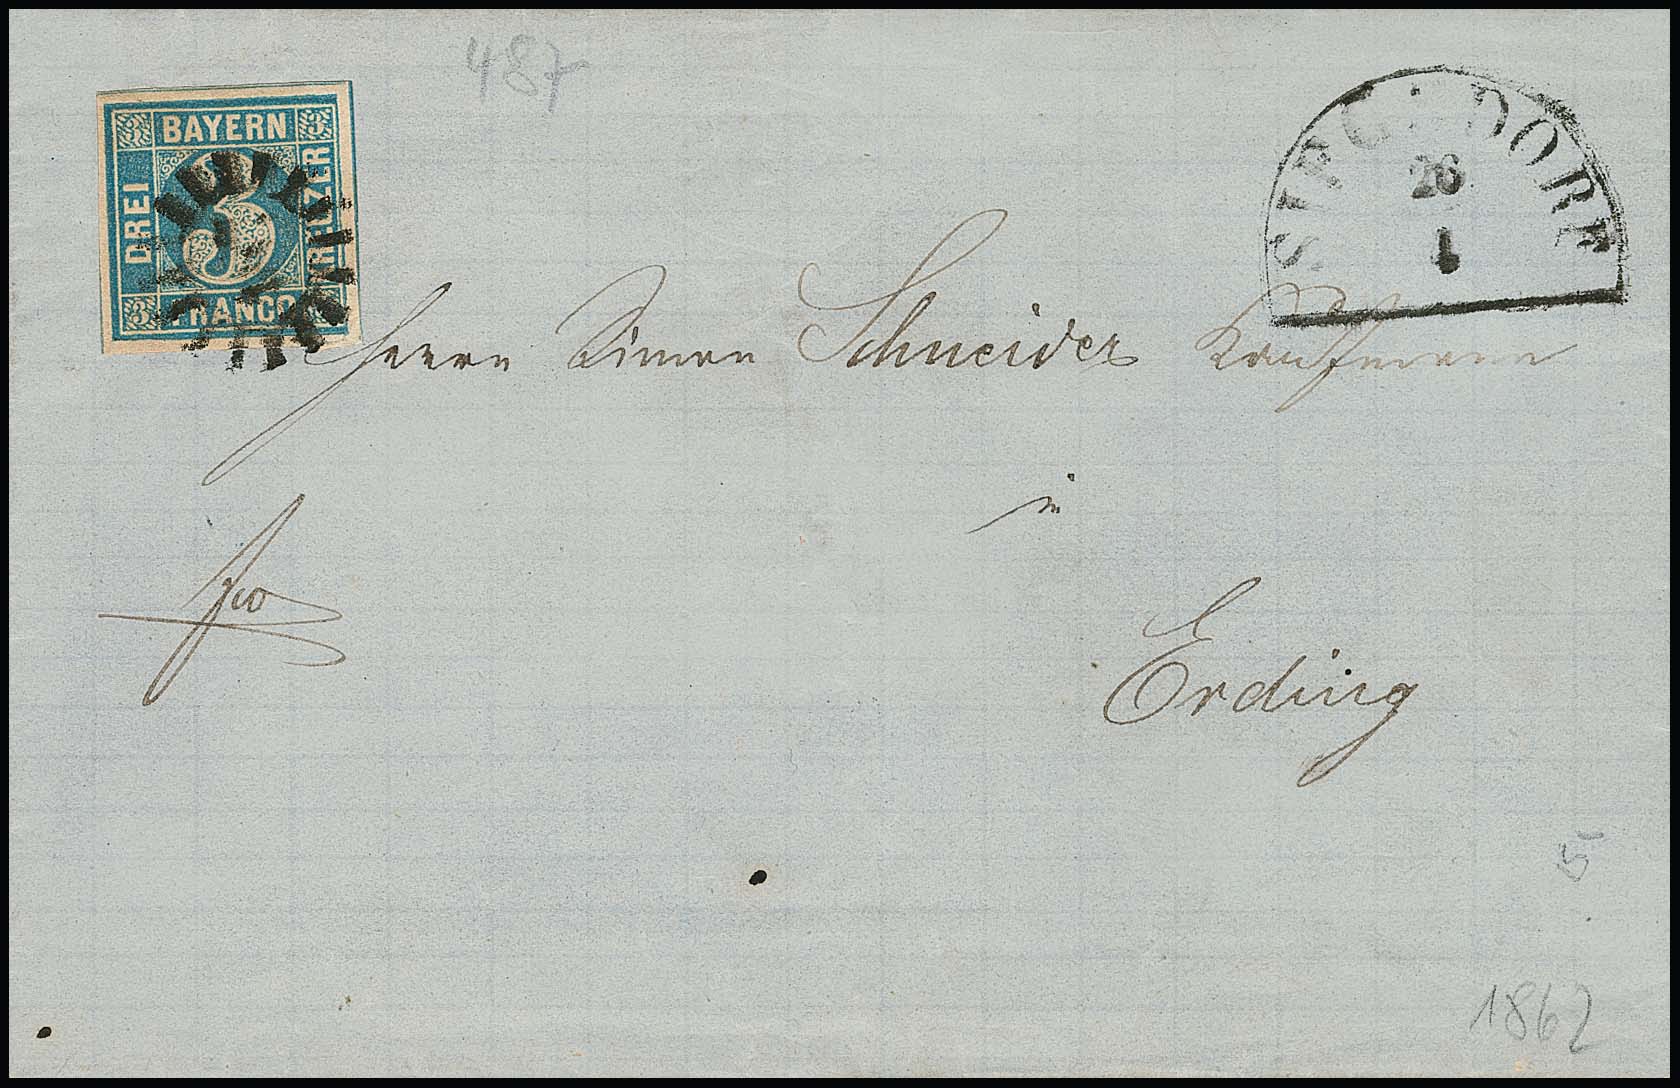 487
3 BAYERN 3
DREI
3
KREUZER
3 FRANCO
SIEGSDORF
26
4
Herrn Simon Schneider Kaufmann
in
fco
Erding
5
1862